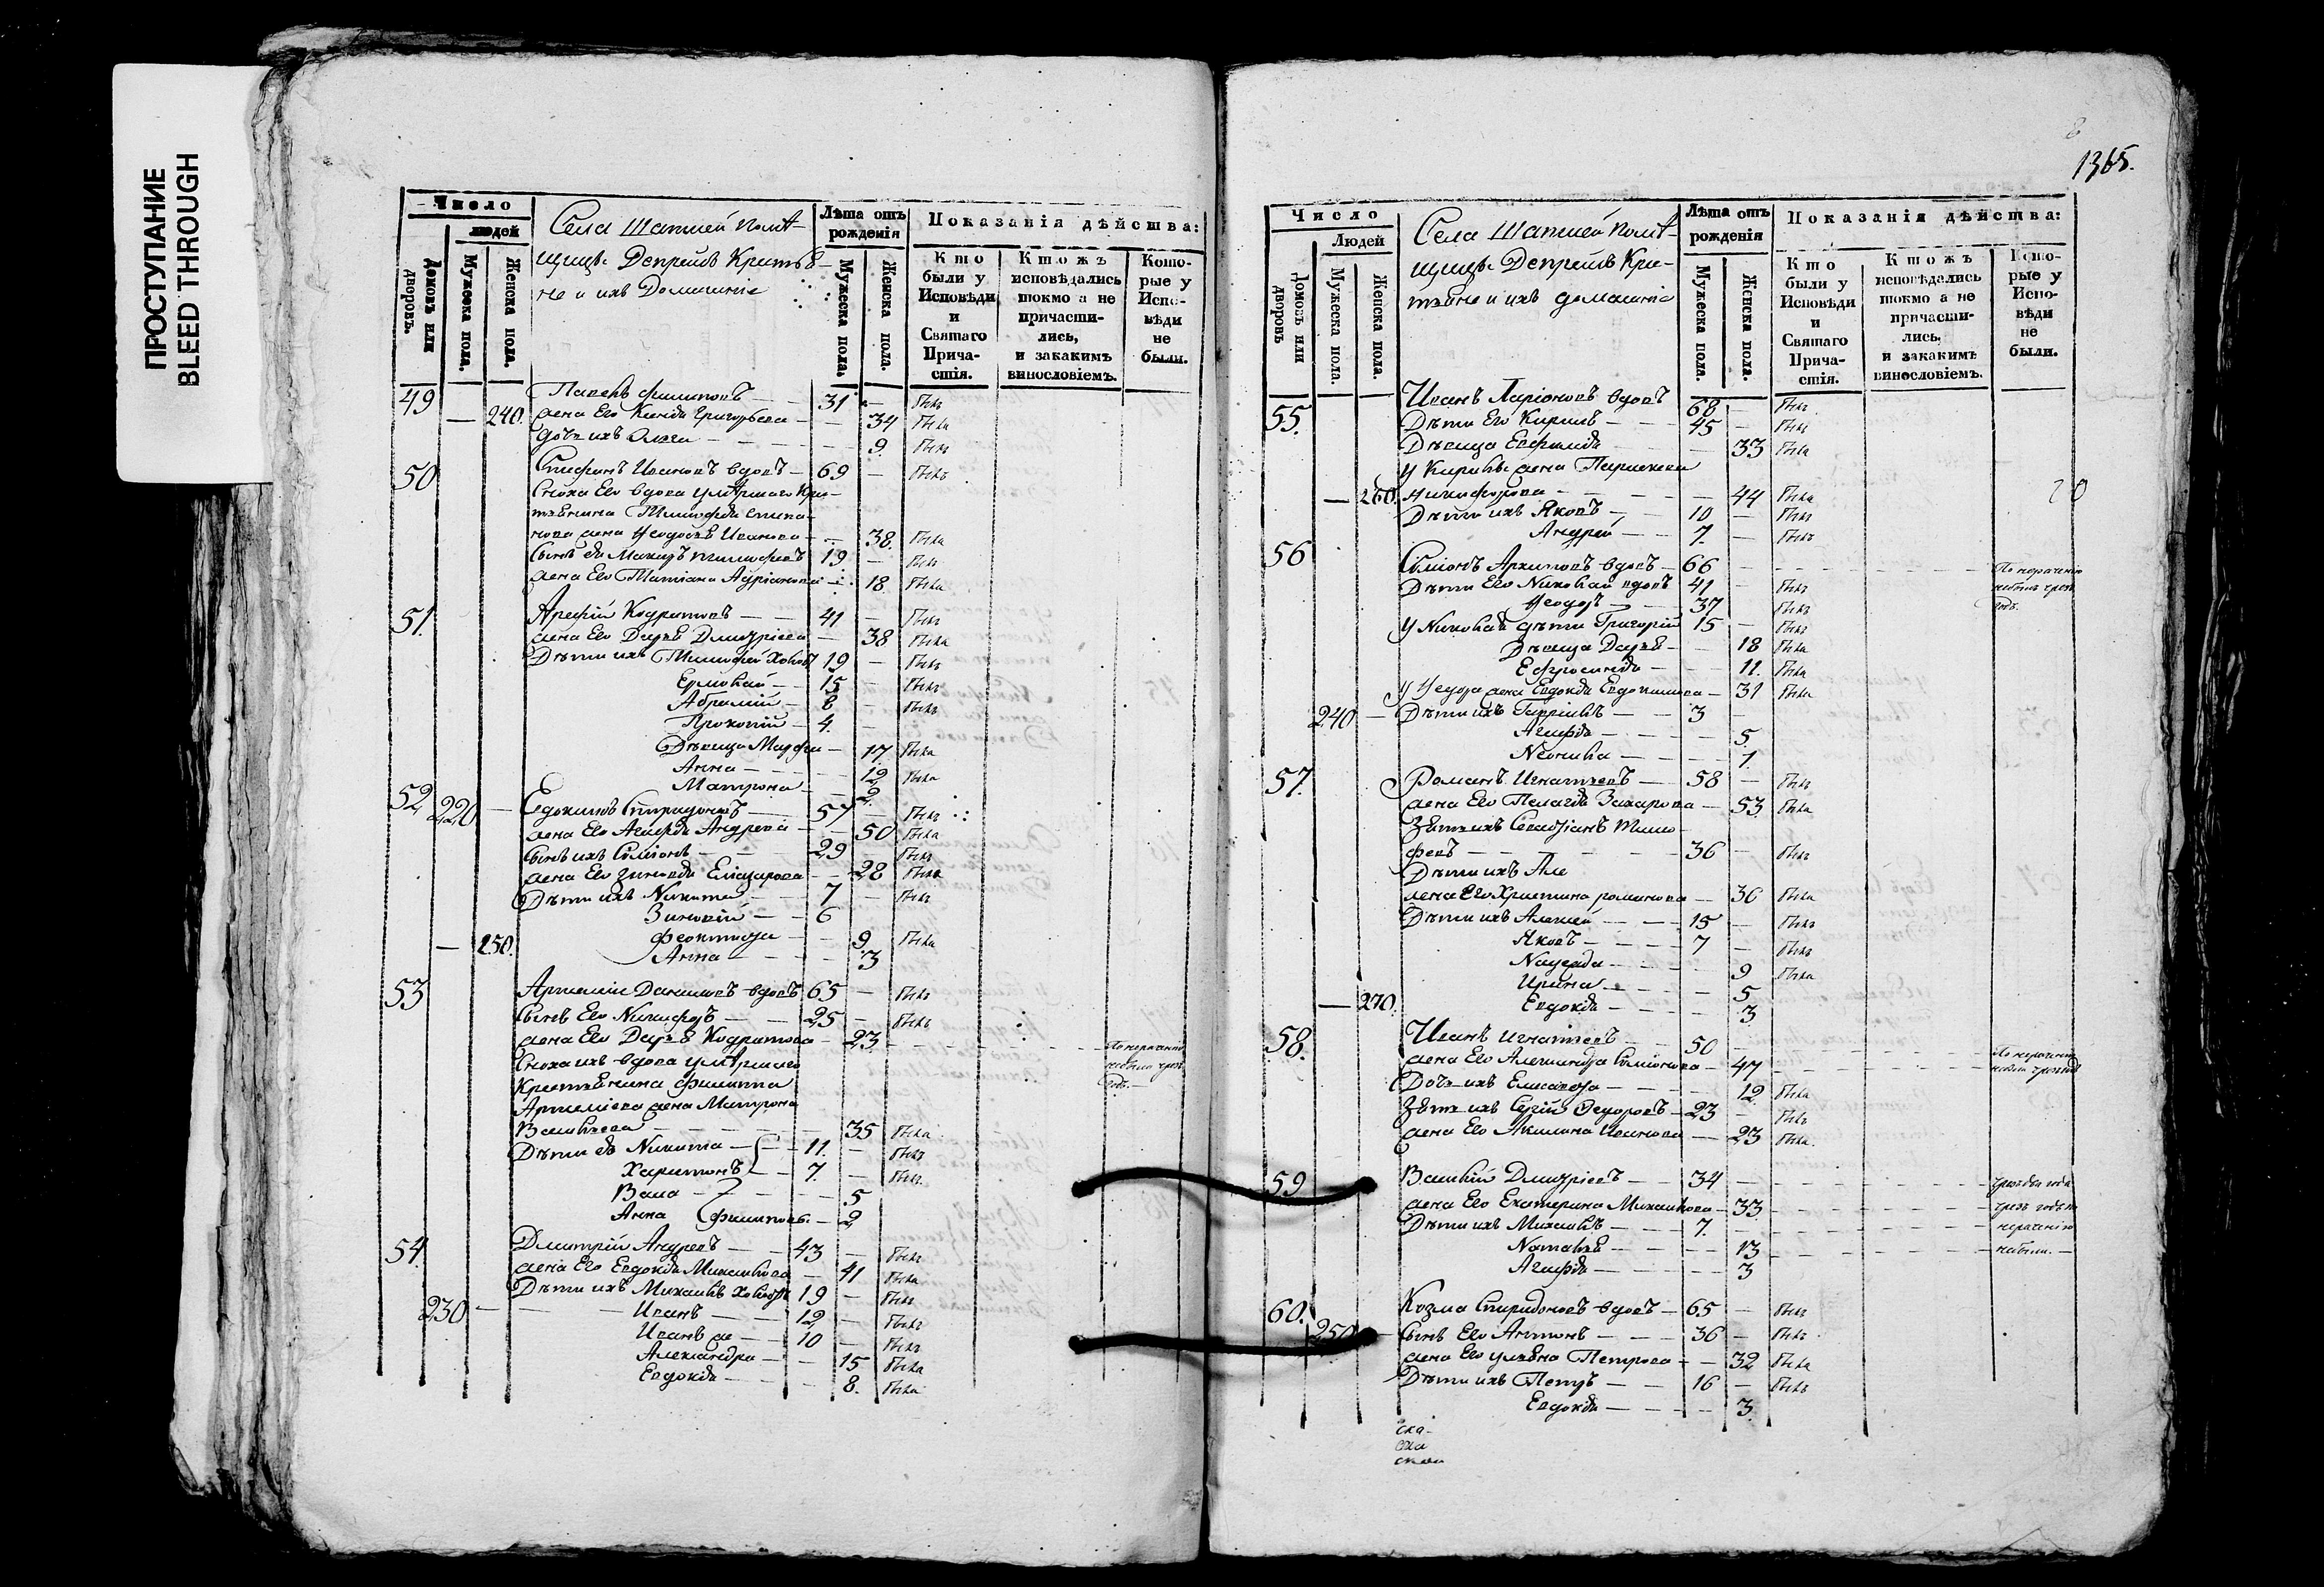 ПРОСТУПАНИЕ
BLEED THROUGH
Число
людей
Домовъ или дворовъ.
Мужеска пола.
Женска пола.
Села Шатшей помѣ-
щицы
не и ихъ Домашніе
Лѣта отъ рожденія
Мужеска пола.
Женска пола.
Показанія дѣйства:
Кто были у Исповѣди и Святаго Причастія.
Ктожъ исповѣдались токмо а не причастились, и закакимъ винословіемъ.
Которые у Исповѣди не были.
49 Павелъ Филиповъ 31 былъ
240. жена Его Григорьева 34 была
дочь ихъ 9. былъ
50 Стефанъ Ивановъ вдовъ 69 былъ
Сноха Его вдова умѣршаго Кре-
стьянина Тимофея Стефа-
нова жена Ѳедосья Иванова 38. была
Сынъ ея Макаръ Тимофеевъ 19 былъ
жена Его Татіана Адріанова 18. была
51. Арефій Кодратовъ 41 былъ
жена Его Дарья Дмитріева 38 была
Дѣти ихъ Тимофей Холостъ 19 былъ
Ермолай 15 былъ
Абрамій 8 былъ
Прокопій 4.
Дѣвица Марфа 17. была
Анна 12 была
Матрона 2.
52 220 Евдокимъ Спиридоновъ 57 былъ
жена Его Агафья Андреева 50 была
Сынъ ихъ Симіонъ 29 былъ
жена Его Зиновья Елизарова 28 была
Дѣти ихъ Никита 7 былъ
Зиновій 6
250. Феоктиста 9. была
Анна 3
53 Артемій Даниловъ вдовъ 65 былъ
Сынъ Его Никифоръ 25 былъ
жена Его Дарья Кодратова 23 По нераченію
Сноха ихъ вдова умѣршаго небыла чрезъ
Крестьянина Филипа годъ.
Артеміева жена Матрона
Васильева 35 была
Дѣти ея Никита 11. былъ
Харитонъ 7. былъ
Васа 5
Анна Филиповы. 2
54. Дмитрій Андреевъ 43 былъ
жена Его Евдокія Михайлова 41 была
Дѣти ихъ Михаилъ Холостъ 19 былъ
230 Иванъ 12 былъ
Иванъ же 10 былъ
Александра 15 была
Евдокія 8. была
1365.
Число
Людей
Домовъ или дворовъ
Мужеска пола.
Женска пола.
Села Шатшей помѣ-
щицы
и ихъ домашніе
Лѣта отъ рожденія
Мужеска пола.
Женска пола.
Показанія дѣйства:
Кто были у Исповѣди и Святаго Причастія.
Ктожъ исповѣдались токмо а не причастились, и закакимъ винословіемъ.
Которые у Исповѣди не были.
55. Иванъ Ларіоновъ вдовъ 68 былъ
Дѣти Его Кирилъ 45 былъ
Дѣвица Евфимія 33 была
У Кирилы жена Параскева
260. Никифорова 44 была
Дѣти ихъ Яковъ 10 былъ
Андрей 7. былъ
56 Симіонъ Архиповъ вдовъ 66 По нераченію
Дѣти Его Николай вдовъ 41 былъ небылъ чрезъ
Ѳедоръ 37 былъ годъ.
У Николая дѣти Григорій 15 былъ
Дѣвица Дарья 18 была
Ефросинья 11. была
У Ѳедора жена Евдокія Евдокимова 31 была
240 Дѣти ихъ Гавріилъ 3
Агафья 5.
Неонила 1.
57. Романъ Игнатьевъ 58 былъ
жена Его Пелагея Захарова 53. была
Зять ихъ Севастіанъ Тимо-
феевъ 36 былъ
Дѣти ихъ Але
жена Его Христина романова 36 была
Дѣти ихъ Алексей 15 былъ
Яковъ 7 былъ
Надежда 9 была
Ирина 5
270. Евдокія 3
58. Иванъ Игнатьевъ 50 По нераченію
жена Его Александра Симіонова 47 небыли чрезъ годъ
Дочь ихъ Елисавета 12. была
Зять ихъ Сергій Ѳедоровъ 23 былъ
жена Его Акилина Иванова 23 была.
59 Василій Дмитріевъ 34 чрезъ два года
жена Его Екатерина Михайлова 33 чрезъ годъ по
Дѣти ихъ Михаилъ 7. нераченію
Наталья 13 небыли.
Агафья 3
60. Козма Спиридоновъ вдовъ 65 былъ
250 Сынъ Его Антонъ 36 былъ
жена Его ульяна Петрова 32 была
Дѣти ихъ Петръ 16 былъ
Евдокія 3.